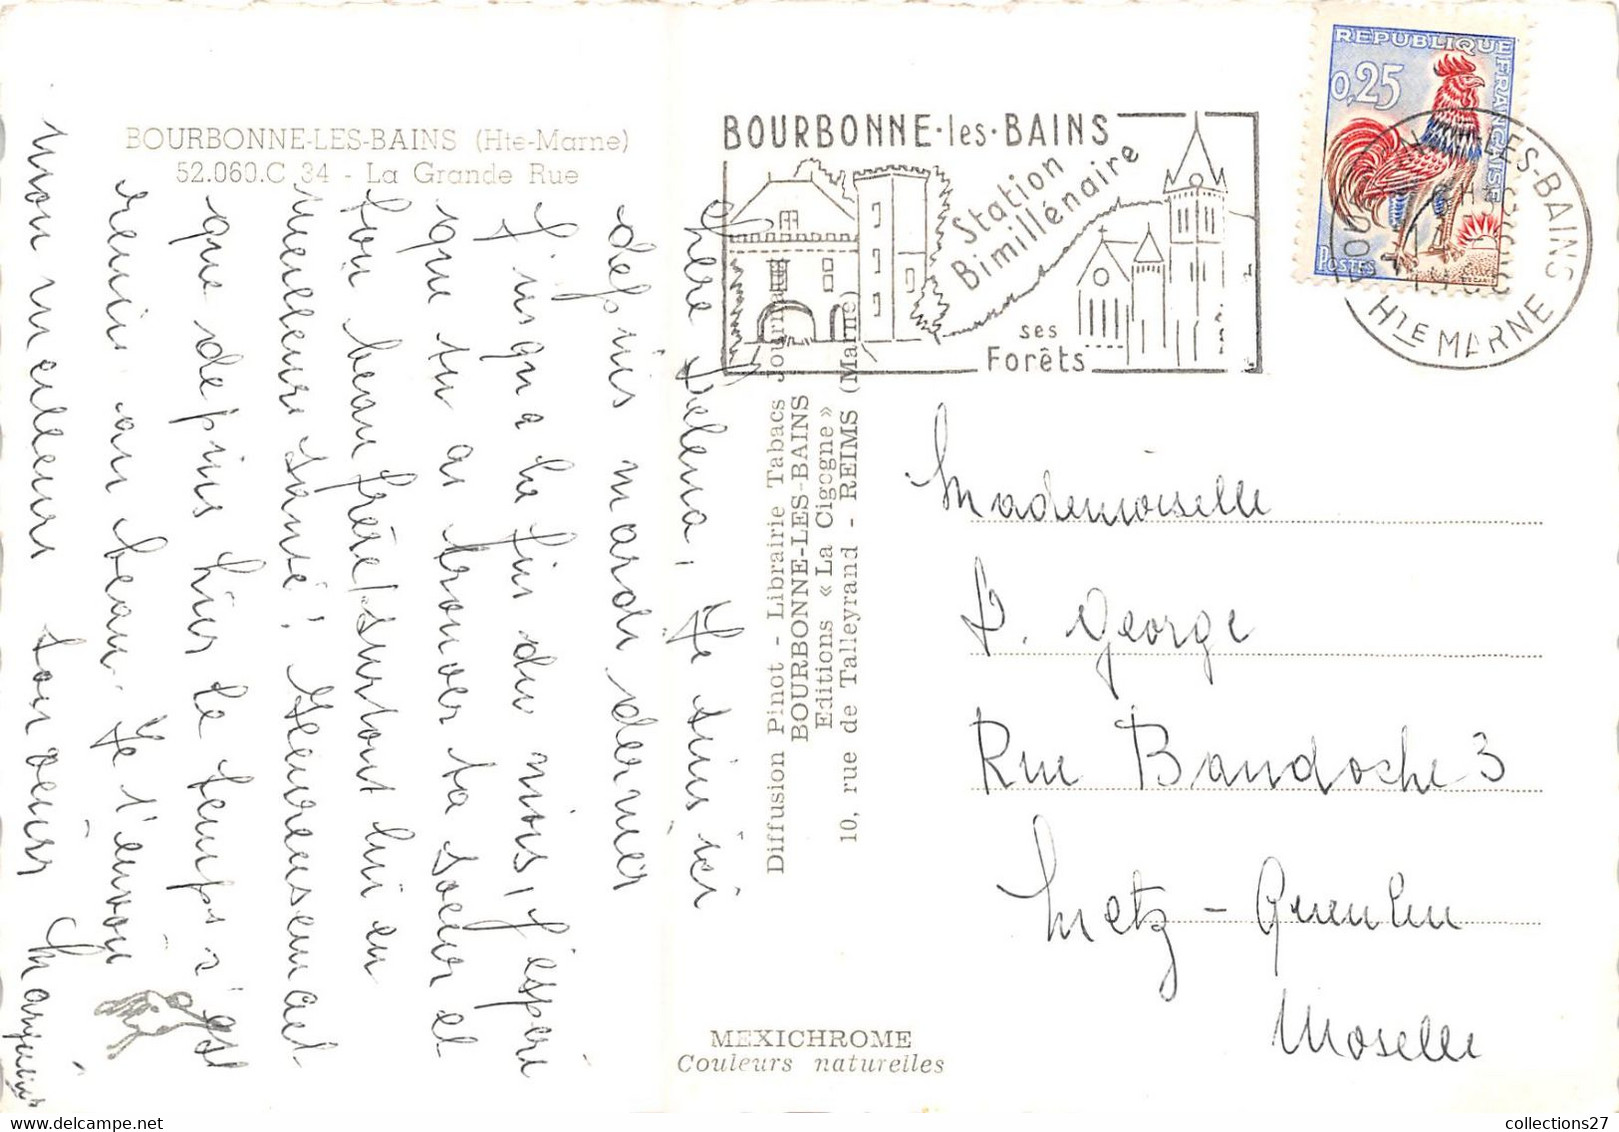 BOURBONNE-LES-BAINS (Hte-Marne)
52.060.C 34 - La Grande Rue
Chère
je suis ici
depuis mardi dernier
jusqu'à la fin du mois, j'espère
que tu as trouver ta soeur et
ton beau frère/surtout lui en
meilleure santé! Heureusement
que depuis hier le temps s'est
remis au beau. Je t'envoie
mon meilleurs souvenirs
Diffusion Pinot - Librairie Tabacs Journaux
BOURBONNE-LES-BAINS
Editions « La Cigogne »
10, rue de Talleyrand - REIMS (Marne)
MEXICHROME
Couleurs naturelles
BOURBONNE·les·BAINS
Station
Bimillénaire
ses
Forêts
REPUBLIQUE FRANÇAISE
0,25
POSTES
LES-BAINS
HTE MARNE
Mademoiselle
P. George
Rue Baudoche 3
Metz - Queuleu
Moselle
collections27